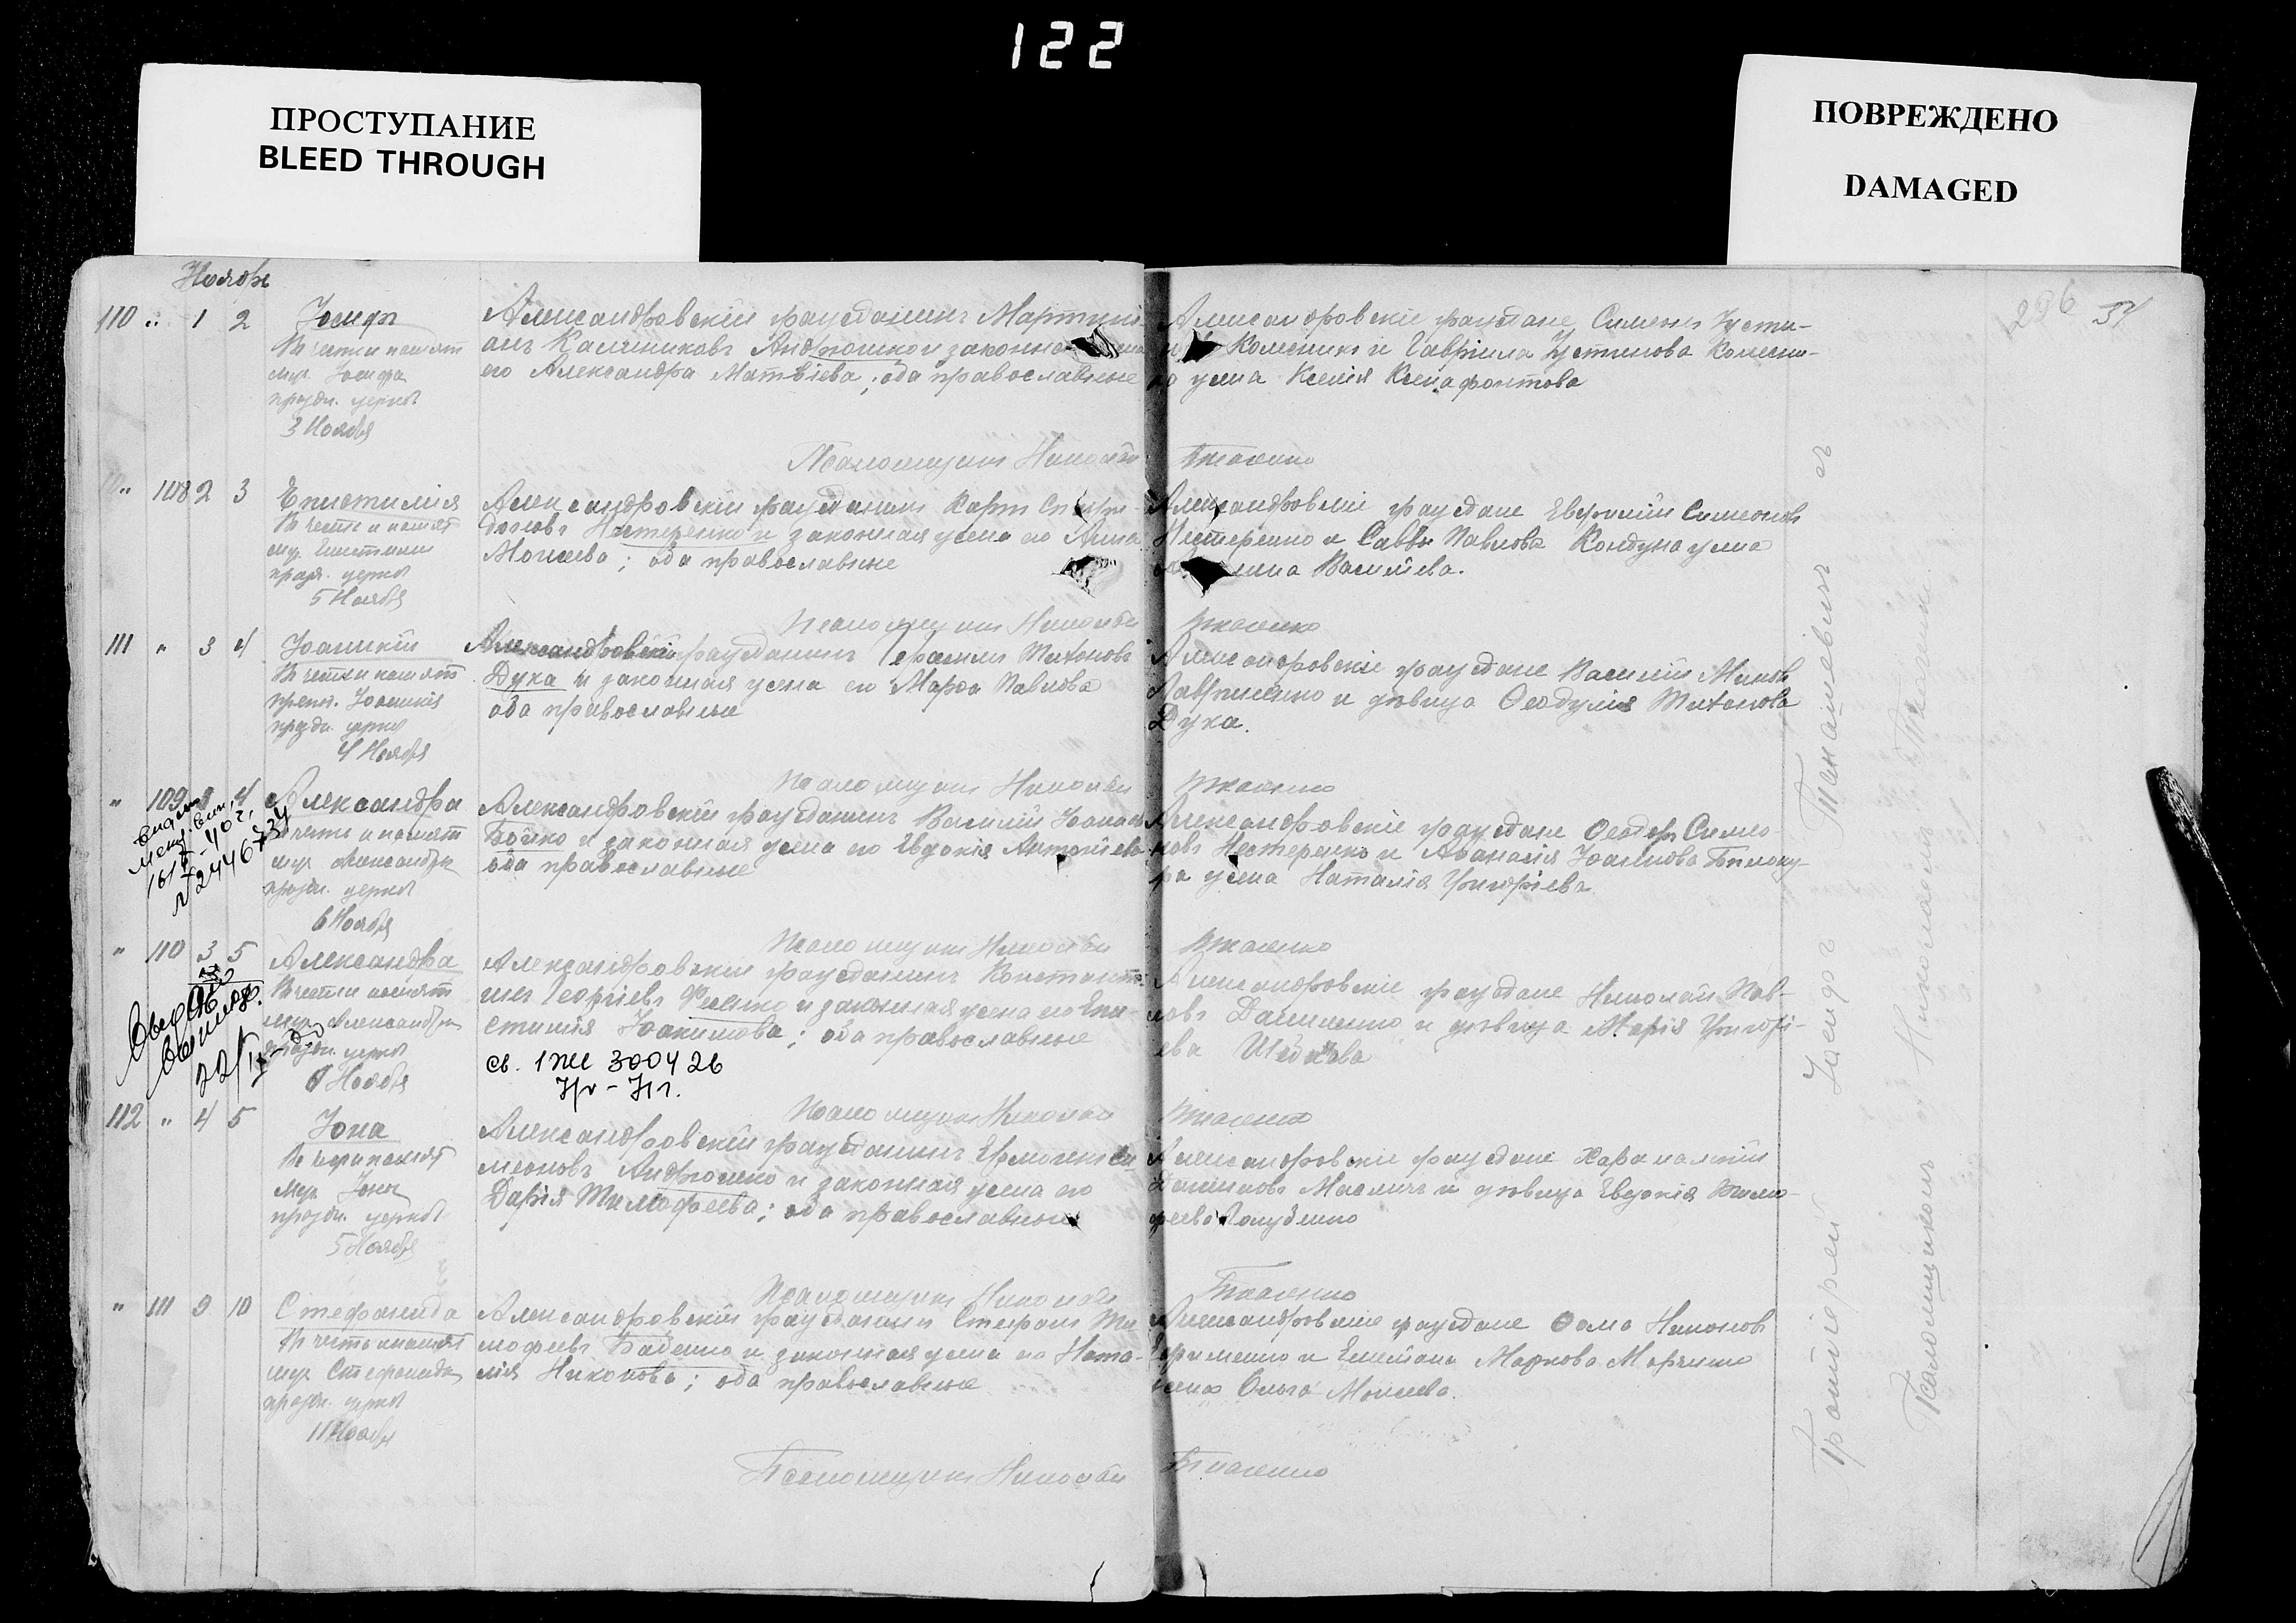 122
ПРОСТУПАНИЕ
BLEED THROUGH
ПОВРЕЖДЕНО
DAMAGED
296 34
Ноябрь
110 " 1 2 Іосифъ
Въ честь и память
муч. Іосифа
праздн. церков
3 Ноября
Александровскій гражданинъ Мартині-
анъ Калиниковъ Андрюшко и законная жена
его Александра Матвѣева; оба православные
Александровскіе граждане Симеонъ Усти-
Колесникъ и Гавріила Устинова Колесни-
ка жена Ксенія Ксенофонтова
Псаломщикъ Николай Ткаченко
" 108 2 3 Епистимія
Въ честь и память
муч. Епистиміи
праздн. церков
5 Ноября
Александровскій гражданинъ Карпъ Спири-
доновъ Нестеренко и законная жена его Анна
Моисеева; оба православные
Александровскіе граждане Евфимій Симеоновъ
Нестеренко и Саввы Павлова Кондура жена
Васильева.
Псаломщикъ Николай Ткаченко
111 " 3 4 Іоанникій
Въ честь и память
преп. Іоанникія
праздн. церков
4 Ноября
Александровскій гражданинъ Герасимъ Титоновъ
Дука и законная жена его Марѳа Павлова
оба православные
Александровскіе граждане Василій Миновъ
Гавриленко и дѣвица Ѳеодулія Титонова
Дука.
Псаломщикъ Николай Ткаченко
" 109 3 4 Александра
Въ честь и память
муч. Александры
праздн. церков
6 Ноября
Александровскій гражданинъ Василій Іоановъ
Бойко и законная жена его Евдокія Антоніева
оба православные
Александровскіе граждане Ѳеодоръ Симео-
новъ Нестеренко и Аѳанасія Іоаннова Билоку-
ра жена Наталія Григоріева
Псаломщикъ Николай Ткаченко
" 110 3 5 Александра
Въ честь и память
муч. Александры
праздн. церков
6 Ноября
22/IX
Александровскій гражданинъ Константи-
нъ Георгіевъ Фесенко и законная жена его Епи-
стимія Іоакимова; оба православные
св. 1 ЖС 300426
Александровскіе граждане Николай Пав-
ловъ Даниленко и дѣвица Марія Григорі-
ева
Псаломщикъ Николай Ткаченко
112 " 4 5 Іона
Въ честь и память
муч. Іоны
праздн. церков
5 Ноября
Александровскій гражданинъ Ермогенъ Си-
меоновъ Андрюшко и законная жена его
Дарія Тимофеева; оба православные
Александровскіе граждане Харалампій
Даниловъ Масличъ и дѣвица Евдокія Тимо-
феева Голубенко
Псаломщикъ Николай Ткаченко
" 111 9 10 Стефанида
Въ честь и память
муч. Стефаниды
праздн. церков
11 Ноября
Александровскій гражданинъ Стефанъ Ти-
мофеевъ Баденко и законная жена его Ната-
лія Никонова; оба православные
Александровскіе граждане Ѳома Никоновъ
Ефименко и Емеліана Маркова Марченко
жена Ольга Моисеева.
Псаломщикъ Николай Ткаченко
Протоіерей Іосифъ Текашевичъ съ
Псаломщикомъ Николаемъ Ткаченко